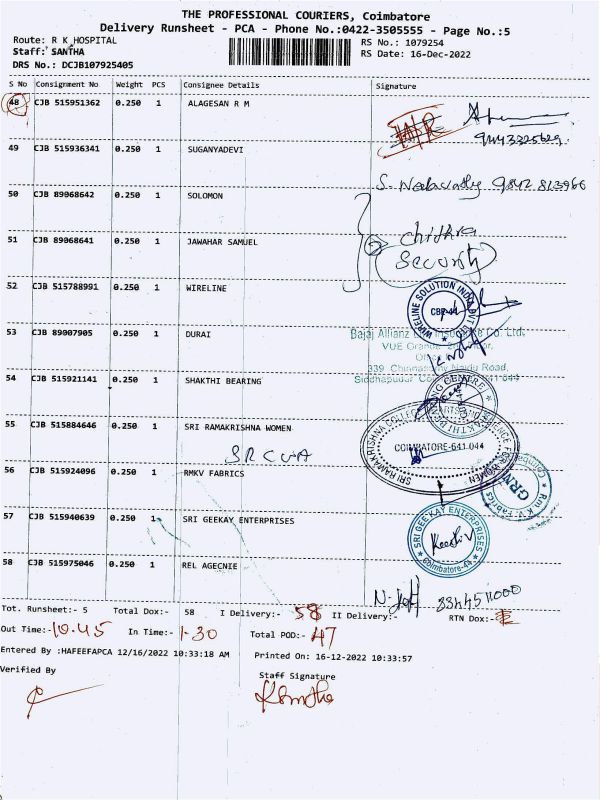 THE PROFESSIONAL COURIERS, Coimbatore
Delivery Runsheet - PCA - Phone No.:0422-3505555 - Page No.:5
Route: R K HOSPITAL
RS No.: 1079254
Staff: SANTHA
RS Date: 16-Dec-2022
DRS No.: DCJB107925405
S No Consignment No Weight PCS Consignee Details Signature
48 CJB 515951362 0.250 1 ALAGESAN R M
49 CJB 515936341 0.250 1 SUGANYADEVI
50 CJB 89068642 0.250 1 SOLOMON
51 CJB 89068641 0.250 1 JAWAHAR SAMUEL
Chithra
(Security)
52 CJB 515788991 0.250 1 WIRELINE
WIRELINE SOLUTION INDIA PVT
CBE-44
53 CJB 89007905 0.250 1 DURAI
Bajaj Allianz Co. Ltd,
VUE Grande
339, Road,
Siddhapudur
54 CJB 515921141 0.250 1 SHAKTHI BEARING
55 CJB 515884646 0.250 1 SRI RAMAKRISHNA WOMEN
SRI RAMAKRISHNA COLLEGE OF ARTS AND SCIENCE FOR WOMEN
COIMBATORE-641 044
SRCWA
56 CJB 515924096 0.250 1 RMKV FABRICS
GRN
57 CJB 515940639 0.250 1 SRI GEEKAY ENTERPRISES
SRI GEE KAY ENTERPRISES
Coimbatore-44
58 CJB 515975046 0.250 1 REL AGECNIE
Tot. Runsheet:- 5 Total Dox:- 58 I Delivery:- 58 II Delivery:- RTN Dox:-
Out Time:- 10.45 In Time:- 1-30 Total POD:- 47
Entered By :HAFEEFAPCA 12/16/2022 10:33:18 AM Printed On: 16-12-2022 10:33:57
Verified By
Staff Signature